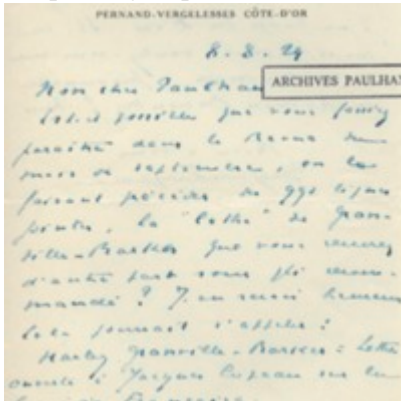 PERNAND-VERGELESSES CÔTE-D'OR
8.8.29
Mon cher Paulhan
ARCHIVES PAULHAN
Est-il possible que vous fassiez
paraître dans la Revue du
mois de septembre, en la
faisant précéder de qqs lignes
jointes, la "lettre" de Gran-
ville-Barker que vous recevrez
d'autre part sous pli recom-
mandé ? J'en serai heureux
Cela pourrait s'appeler :
Harley Granville-Barker : Lettre
ouverte à Jacques Copeau sur